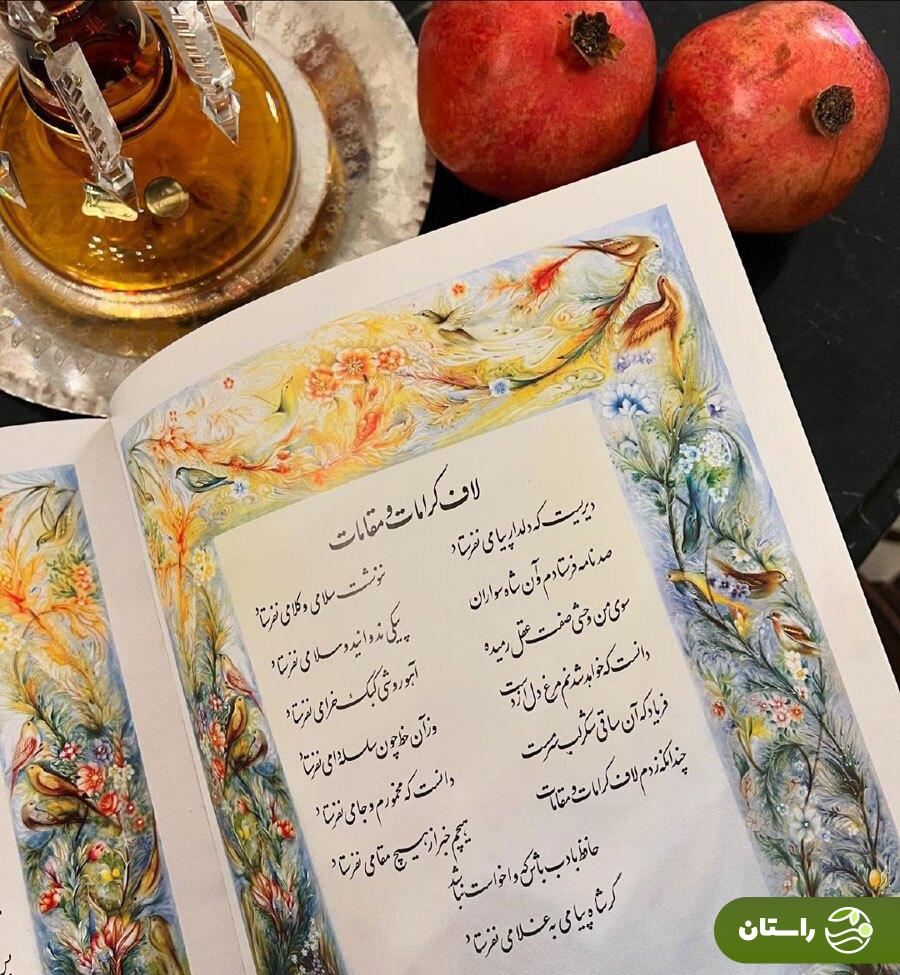 لاف کرامات و مقامات
دیریست که دلدار پیامی نفرستاد
ننوشت سلامی و کلامی نفرستاد
صد نامه فرستادم و آن شاه سواران
پیکی ندوانید و سلامی نفرستاد
سوی من وحشی صفت عقل رمیده
آهو روشی کبک خرامی نفرستاد
دانست که خواهد شدنم مرغ دل از دست
وز آن خط چون سلسله دامی نفرستاد
فریاد که آن ساقی شکر لب سرمست
دانست که مخمورم و جامی نفرستاد
چندانکه زدم لاف کرامات و مقامات
هیچم خبر از هیچ مقامی نفرستاد
حافظ بادب باش که واخواست نباشد
گر شاه پیامی به غلامی نفرستاد
راستان